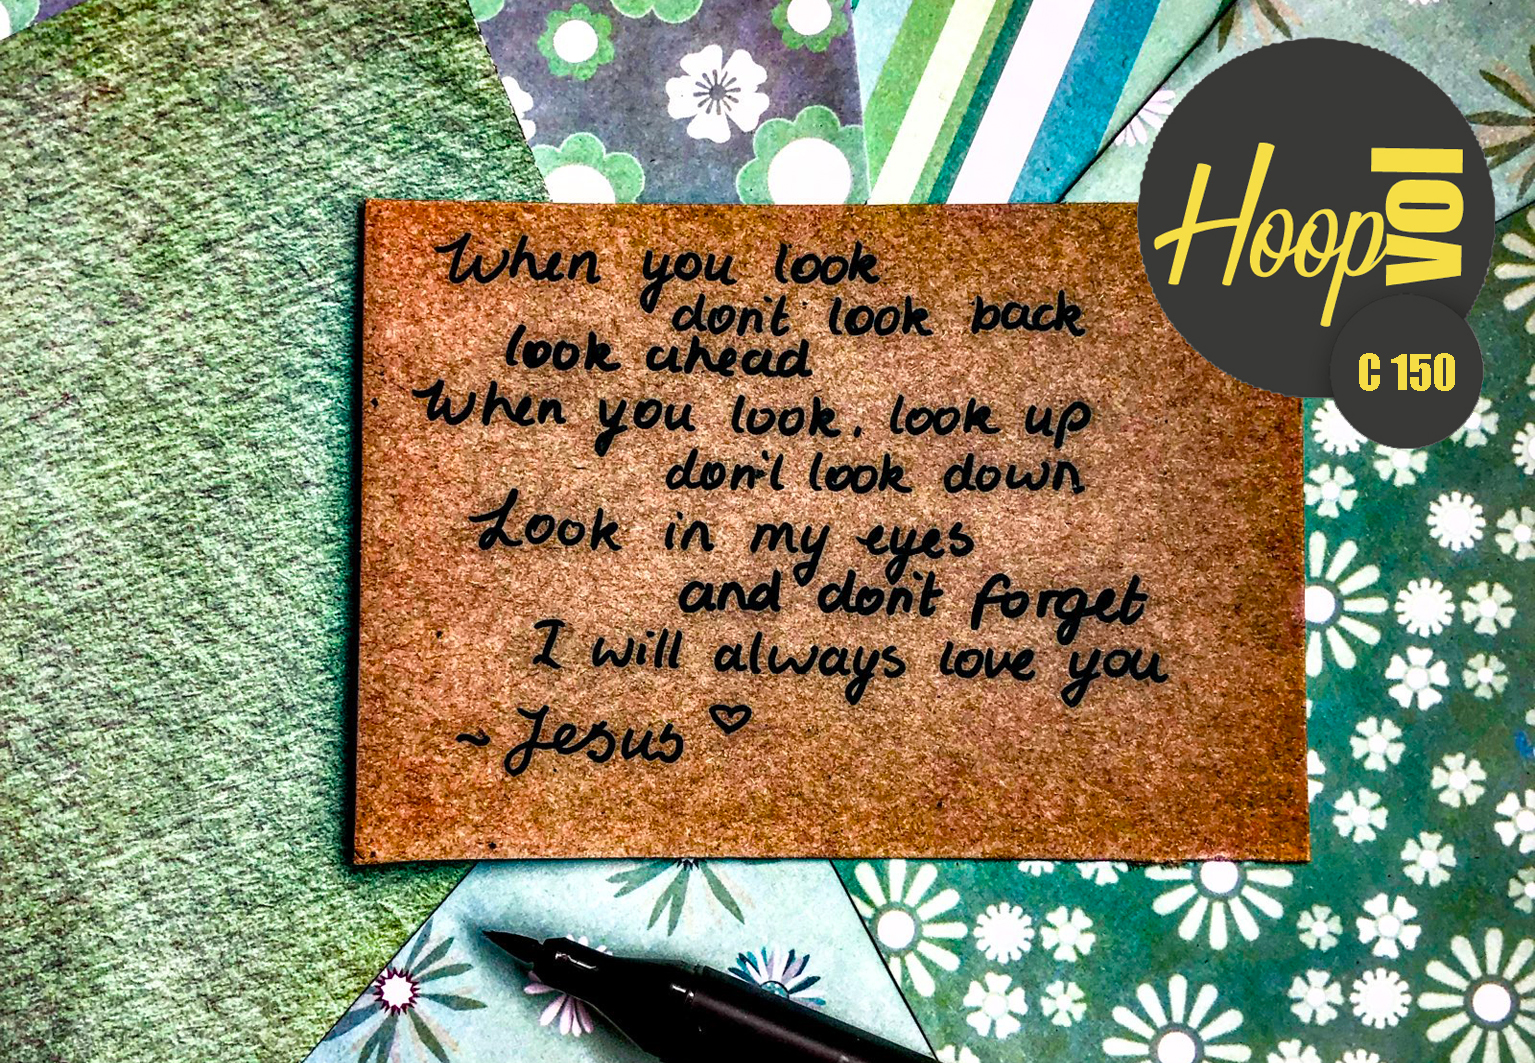 When you look
don't look back
look ahead
When you look, look up
don't look down
Look in my eyes
and don't forget
I will always love you
~ Jesus ♡
Hoop
vol
C 150